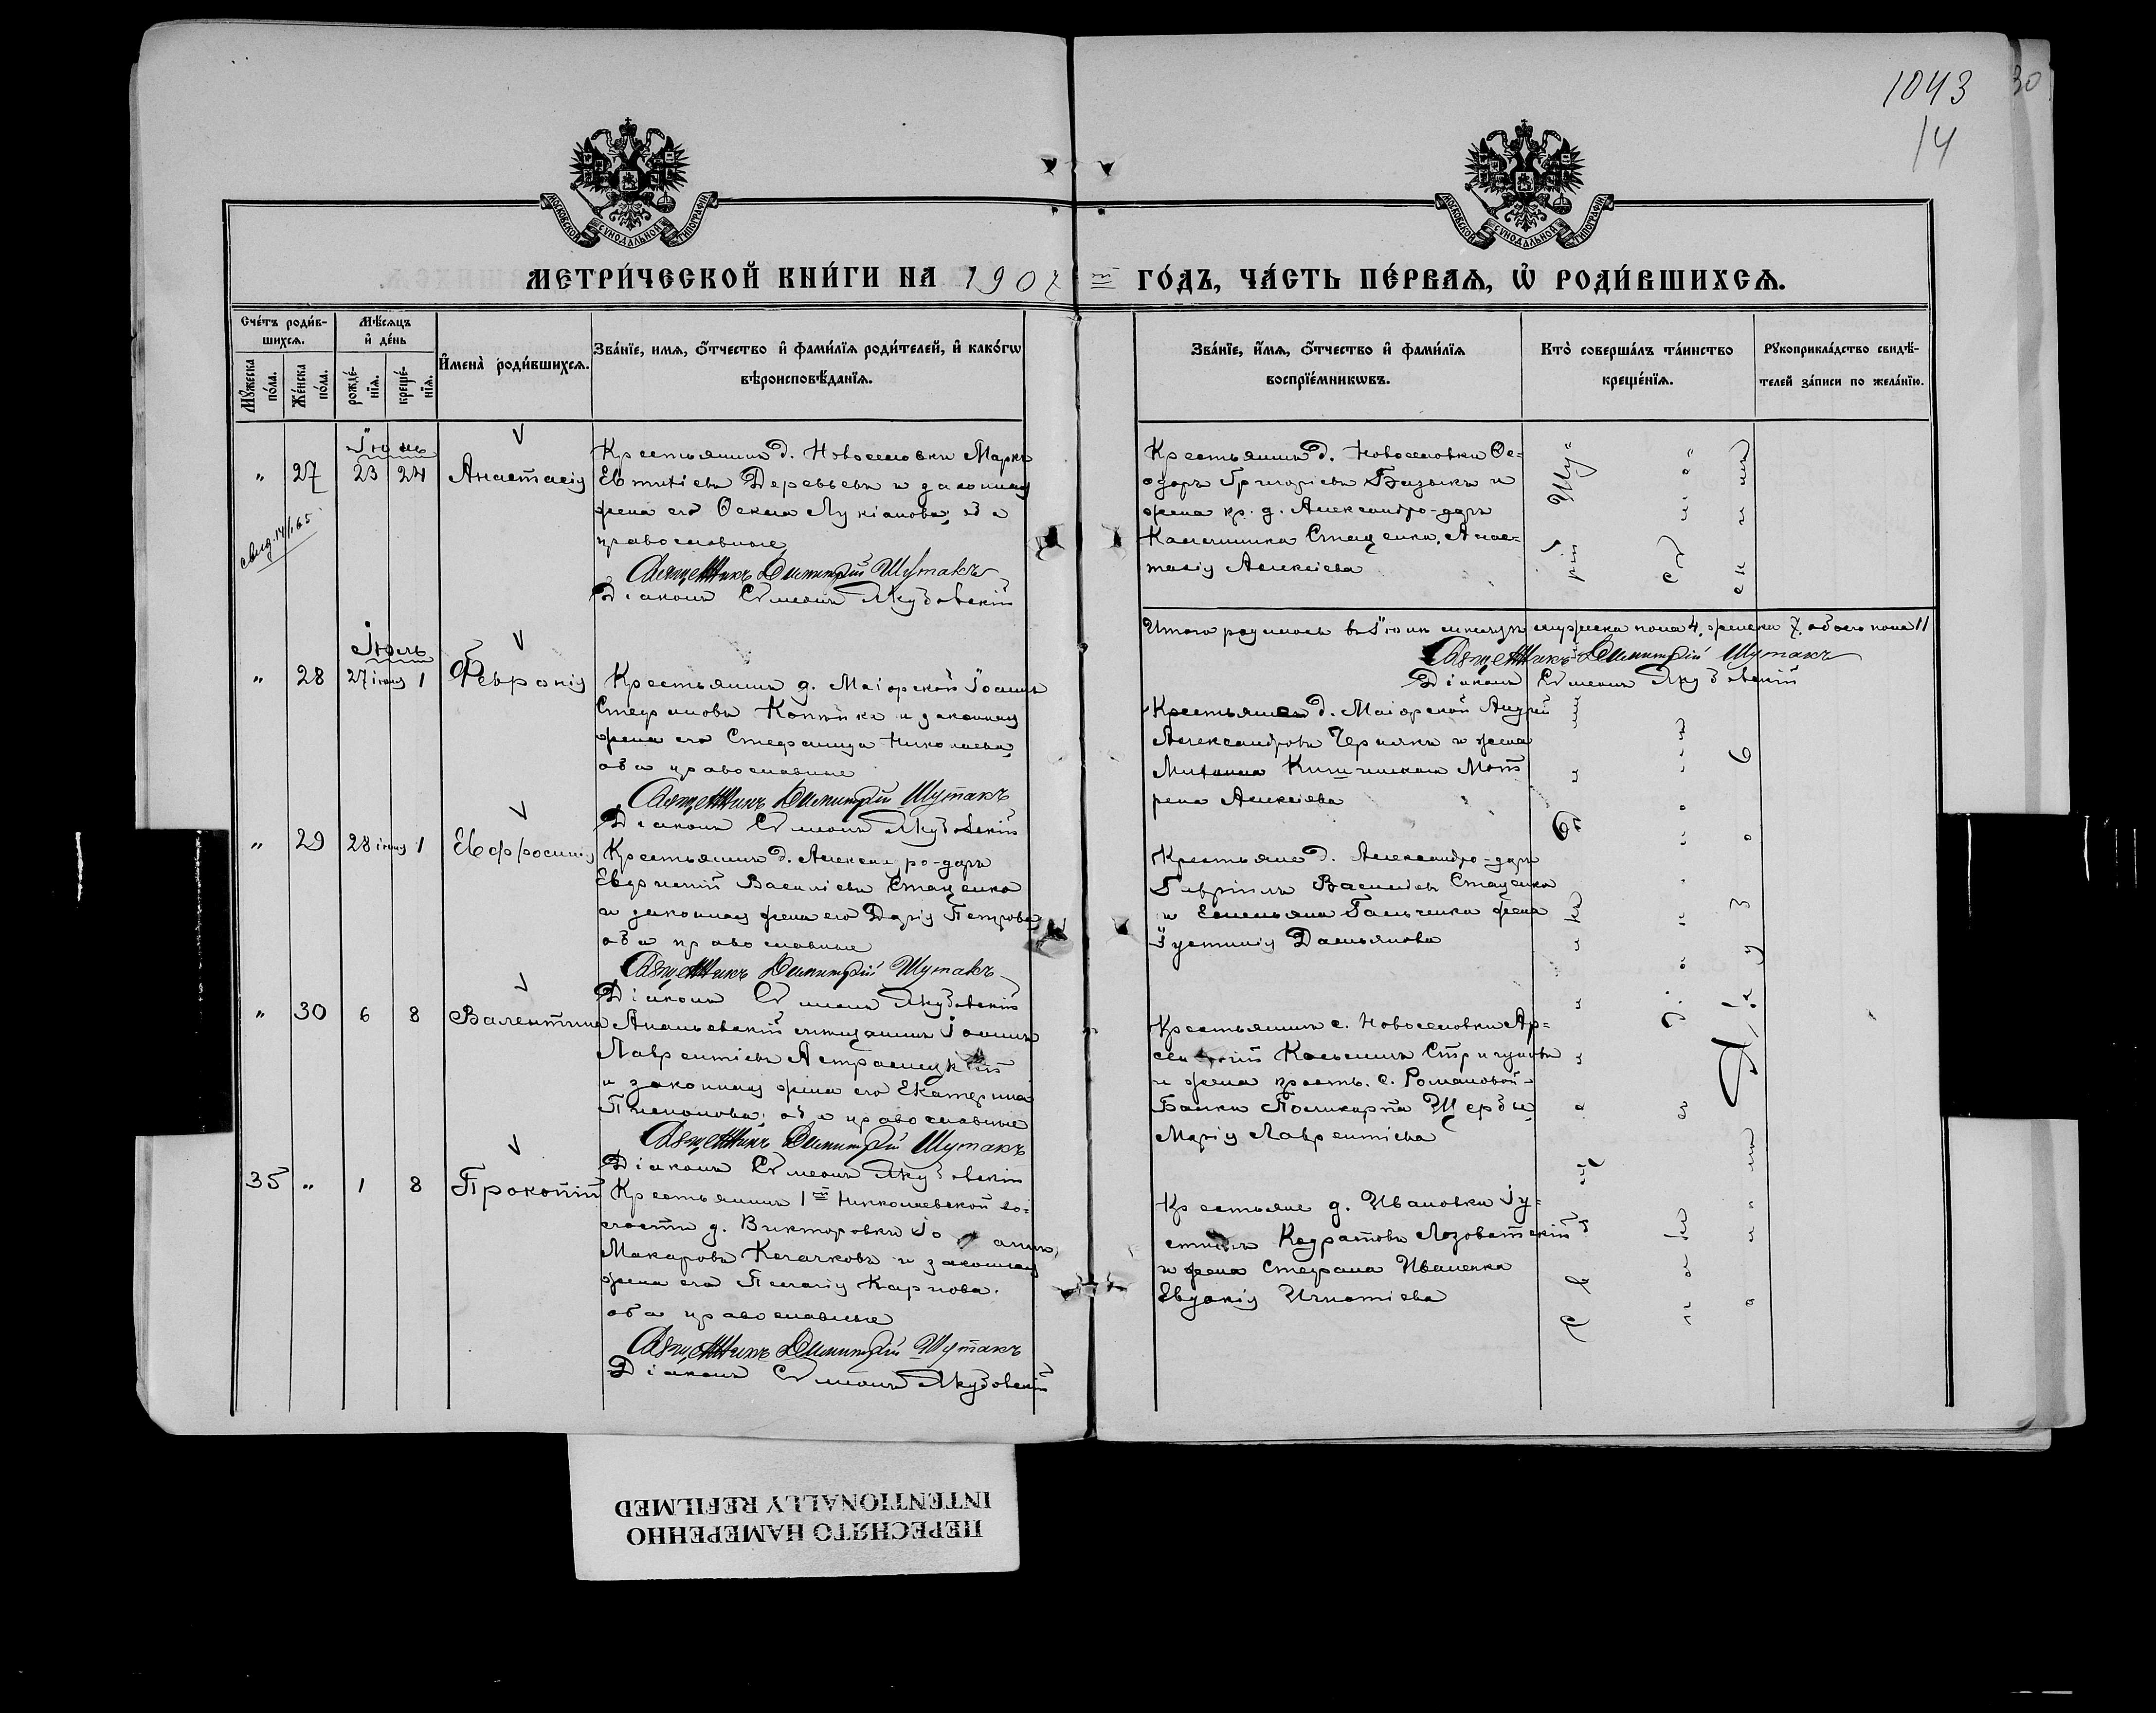 1043
30
14
МОСКОВСКОЙ СѴНОДАЛЬНОЙ ТИПОГРАФІИ
МОСКОВСКОЙ СѴНОДАЛЬНОЙ ТИПОГРАФІИ
МЕТРИ́ЧЕСКОЙ КНИ́ГИ НА 1907
й ГО́ДЪ, ЧА́СТЬ ПЕ́РВАЯ, Ѡ҆ РОДИ́ВШИХСЯ.
Сче́тъ роди́в-
шихся.
Мѣ́сяцъ
и҆ де́нь
Мꙋ́жеска по́ла.
Же́нска по́ла.
рожде́-
нїя.
креще́-
нїя.
И҆мена̀ роди́вшихся.
Зва́нїе, имя, ѻ҆́тчество и҆ фами́лїя роди́телей, и҆ како́гѡ
вѣроисповѣ́данїя.
Зва́нїе, и҆́мя, ѻ҆́тчество и҆ фами́лїя
воспрїе́мникѡвъ.
Кто̀ соверша́лъ та́инство
креще́нїя.
Рꙋкоприкла́дство свидѣ́-
телей за́писи по жела́нїю.
Іюнь
" 27 23 24 Анастасія
свид. 14/1.65
Крестьянинъ д. Новоселовки Маркъ
Евтихіевъ Деревьевъ и законная
жена его Ѳекла Лукіанова, оба
православные
Священникъ Димитрій Шутакъ
Діаконъ Сѵмеонъ Якубовскій
Крестьянинъ д. Новоселовки Ѳе=
одоръ Григоріевъ Базыкъ и
жена кр. д. Александро-даръ
Стаценка, Анас=
тасія Алексіева
Итого родилось въ Іюнѣ мѣсяцѣ мужеска пола 4, женска 7, обоего пола 11
Священникъ Димитрій Шутакъ
Діаконъ Сѵмеонъ Якубовскій
Іюль
" 28 27 іюня 1 Февронія
Крестьянинъ д. Маіорской Іоаннъ
Стефановъ Копійка и законная
жена его Стефанида Николаева,
оба православные
Священникъ Димитрій Шутакъ
Діаконъ Сѵмеонъ Якубовскій
Крестьянинъ д. Маіорской Андрей
Александровъ Чернякъ и жена
Мот
рона Алексіева
" 29 28 іюня 1 Евфросинія
Крестьянинъ д. Александро-даръ
Евфимій Василіевъ Стаценко
и законная жена его Дарія Петрова
оба православные
Священникъ Димитрій Шутакъ
Діаконъ Сѵмеонъ Якубовскій
Крестьяне д. Александро-даръ
Гавріилъ Василіевъ Стаценко
и Емельяна Гальченка жена
Іустинія Дамьянова
" 30 6 8 Валентина
Ананьевскій мѣщанинъ Іоаннъ
Лаврентіевъ
и законная жена его Екатерина
оба православные
Священникъ Димитрій Шутакъ
Діаконъ Сѵмеонъ Якубовскій
Крестьянинъ с. Новоселовки Ар=
сеній Косьминъ Стригуновъ
и жена крест. с. Романовой-
Балки Поликарпа Щербы
Марія Лаврентіева
35 " 1 8 Прокопій
Крестьянинъ 1й Николаевской во=
лости д. Викторовки Іоаннъ
Макаровъ Клачковъ и законная
жена его Пелагія Карпова.
оба православные
Священникъ Димитрій Шутакъ
Діаконъ Сѵмеонъ Якубовскій
Крестьяне д. Ивановки Іу=
стинъ Кодратовъ Лозоватскій
и жена Стефана Иваненка
Евдокія Игнатіева
Священникъ Димитрій Шу=
такъ съ діакономъ Сѵмеономъ
Якубовскимъ
ПЕРЕСНЯТО НАМЕРЕННО
INTENTIONALLY REFILMED